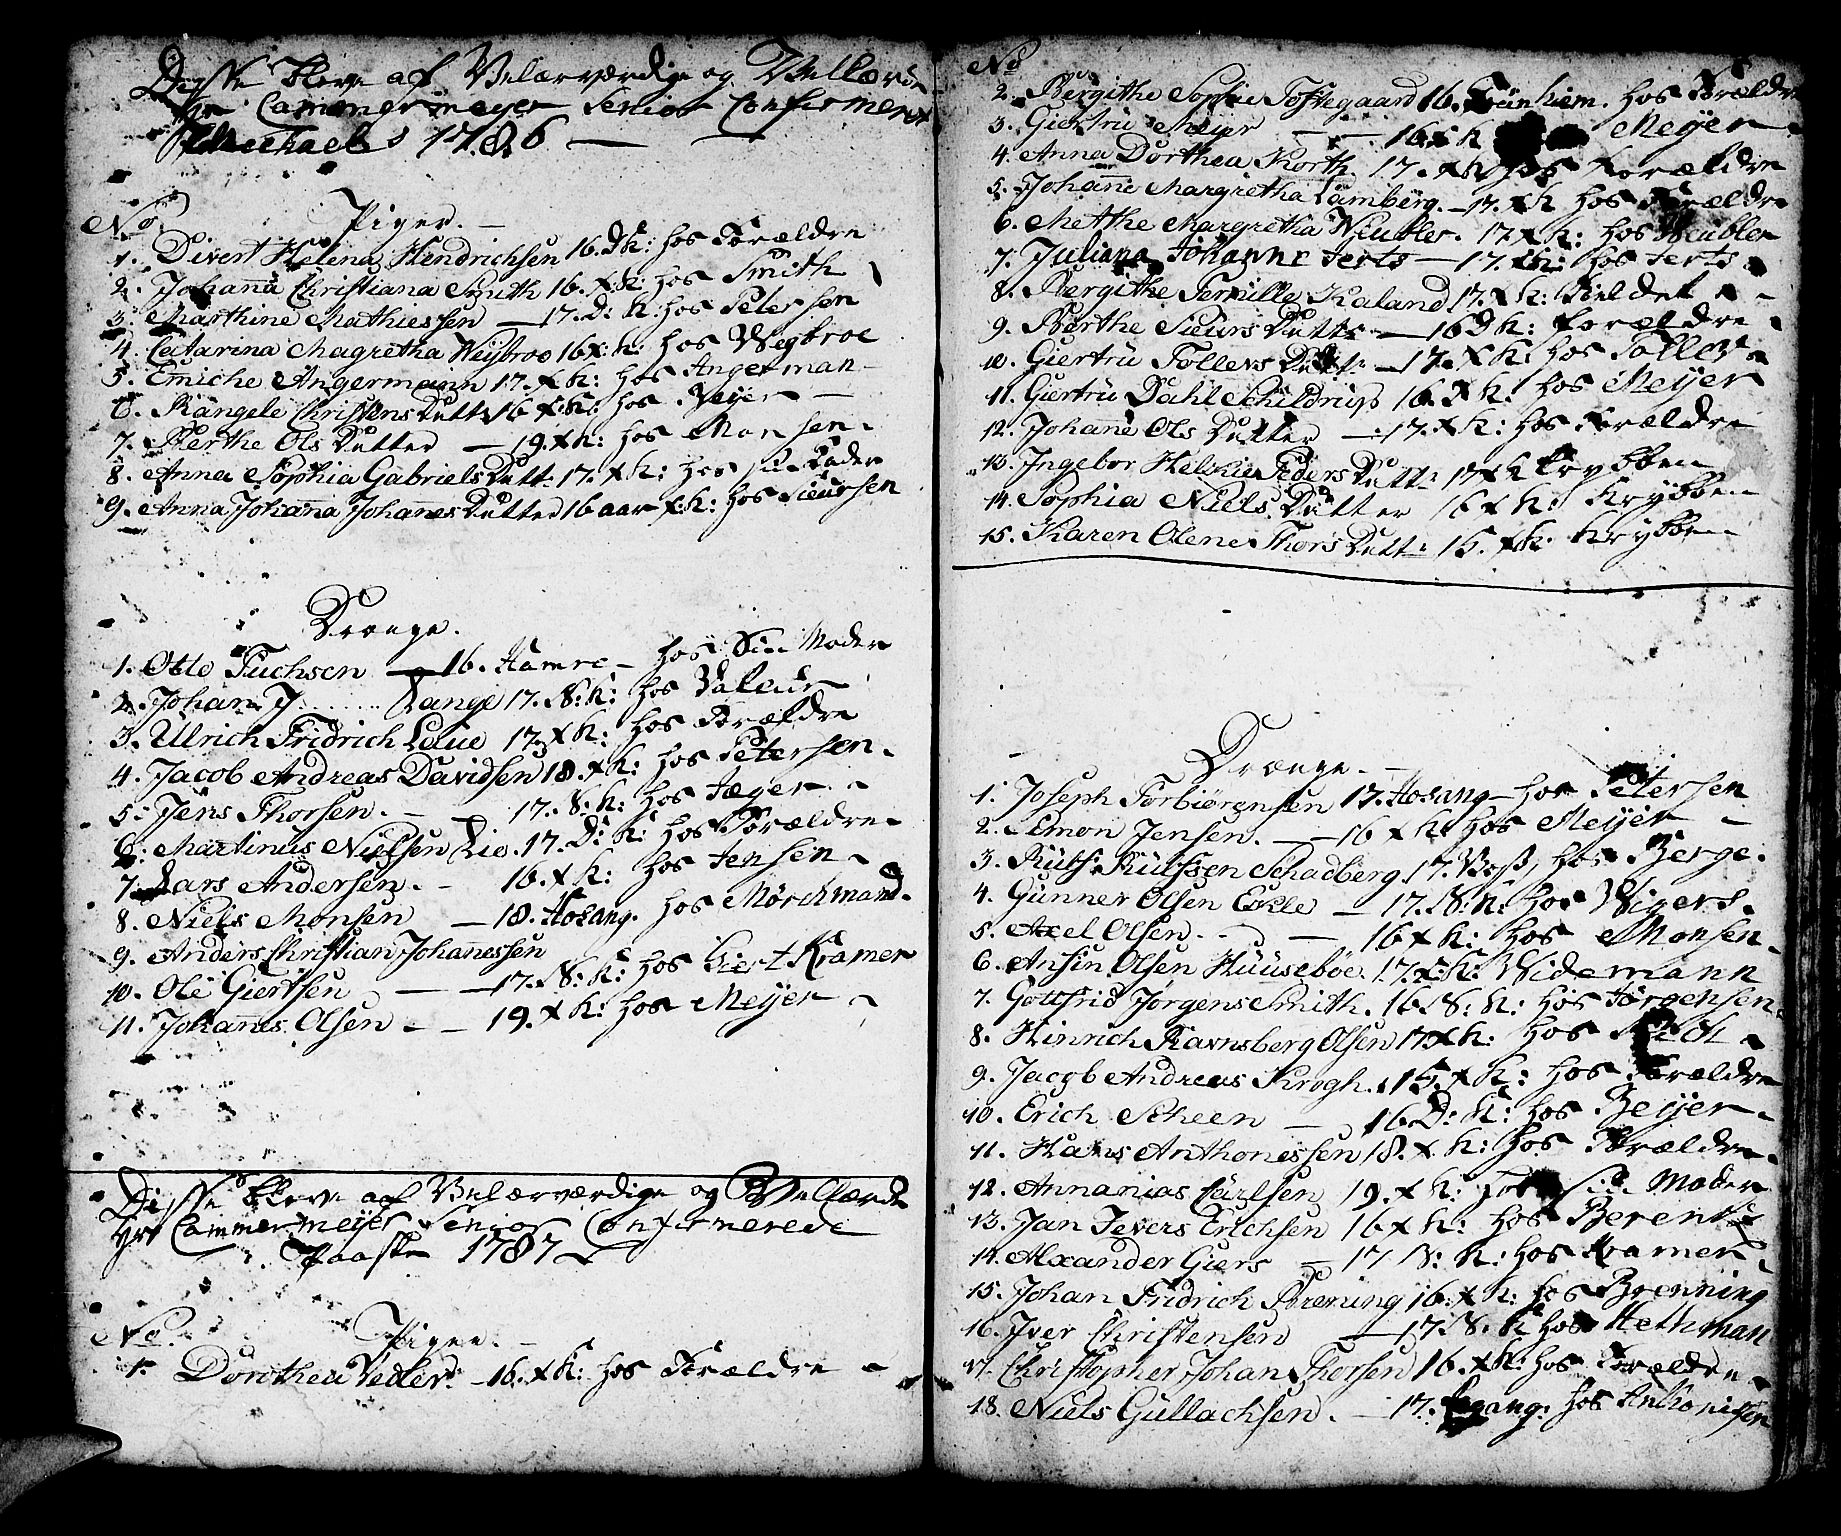 Disse bleve af Velærværdige og Vellærde
Hr Cammermeyer Senior Confirmeret
Michaeli 1786
No Piger.
1. Divert Helena Hendrichsen 16. D.K: hos Forældre
2. Johana Christiana Smith 16. X.K: hos Smith
3. Marthine Mathiessen — 17. D: K: hos Petersen
4. Catarina Magretha Weÿbroe 16 X: K: hos Wegbroe
5. Emiche Angermann 17. X K: hos Angerman
6. Rangele Christens Dutt 16 X: K: hos Meyer —
7. Berthe Ols Dutter — 19. X K: hos Monsen.
8. Anna Sophia Gabriels Dutt: 17. X K: hos sin Fader
9. Anna Johana Johanes Dutter 16 aar X: K: hos Sieursen
Drænge.
1. Otto Fuchsen — 16. Hamre — hos Sin Moder
2. Johan J...... Lange 17. N: K: hos Valeur
3. Ullrich Fridrich Laue 17. X K: hos Forældre
4. Jacob Andreas Davidsen 18. X K: hos Petersen.
5. Jens Thorsen. — 17. N: K: hos Jæger.
6. Martinus Nielsen Lie. 17. D: K: hos Forældre
7. Lars Andersen. - 16. X K: hos Jensen
8. Niels Monsen — 18. Hosang. hos Mörchmand.
9. Anders Christian Johanessen
10. Ole Giertsen — 17. N: K: hos Giert Kramer
11. Johanes Olsen - - 19. X K: hos Meyer
Disse bleve af Velærværdige og Vellærde
Hr Cammermeyer Senior Confirmerede
Paaske 1787
No. Piger. -
1. Dorothea Vedler. — 16. X K: hos Forældre
No
2. Bergithe Sophie Toftegaard 16. Trünhiem. hos Forældre
3. Giertru Meyer — — 16 X K Meyer
4. Anna Dorthea Korth. 17. X K hos Forældre
5. Johane Margretha Lamberg. — 17. X K hos Forældre
6. Mette Margretha Neubler. 17. X K: hos Neubler
7. Juliana Johanne Jerts — 17. X K: hos Jerts
8. Bergithe Pernille Kaland 17. X K: Kieldet
9. Berthe Sieurs Dutter — 16 D K: Forældre
10. Giertru Tollevs Dutt: — 17. X K: hos Tollev
11. Giertru Dahl Schildrup 16. X K: hos Meyer
12. Johane Ols Dutter —: 17. X K: hos Forældre
13. Ingebor Helchie Peders Dutt: 17 X K Krybben
14. Sophia Niels Dutter 16 X K: Krybben
15. Karen Olene Thors Dutt: 15. X K: Krybben
Drænge. -
1. Joseph Torbiörensen 17. Hosang — hos Petersen
2. Simon Jensen. — 16 X K: hos Meyer
3. Rüts: Rütssen Schadberg. 17. Voss, hos Berge.
4. Gunner Olsen Eide — 17. N: K: hos Wigers.
5. Axel Olsen. — 16 X K: hos Monsen.
6. Ansin Olsen Huusebøe. 17. X: K: Widemann
7. Gottfrid Jørgen Smith. 16. N: K: hos Jörgensen.
8. Hinrich Ravnsberg Olsen 17. X K: hos
9. Jacob Andreas Krogh. 15. X K: hos Forældre
10. Erich Scheen — 16 D: K: hos Beyer.
11. Hans Anthonessen 18. X K: hos Forældre.
12. Annanias Carlsen 19. X K: hos sin Moder
13. Jan Jevers Erichsen 16 X K: hos Berents
14. Alxander Giers — 17 N: K: hos Kramer
15. Johan Fridrich Brening 16. X K: hos Brenning
16. Iver Christensen — 17. N. K hos Hethman
17. Christopher Johan Thorsen 16. X K: hos Forældre
18. Niels Gullachsen. — 17. hos Anthonissen